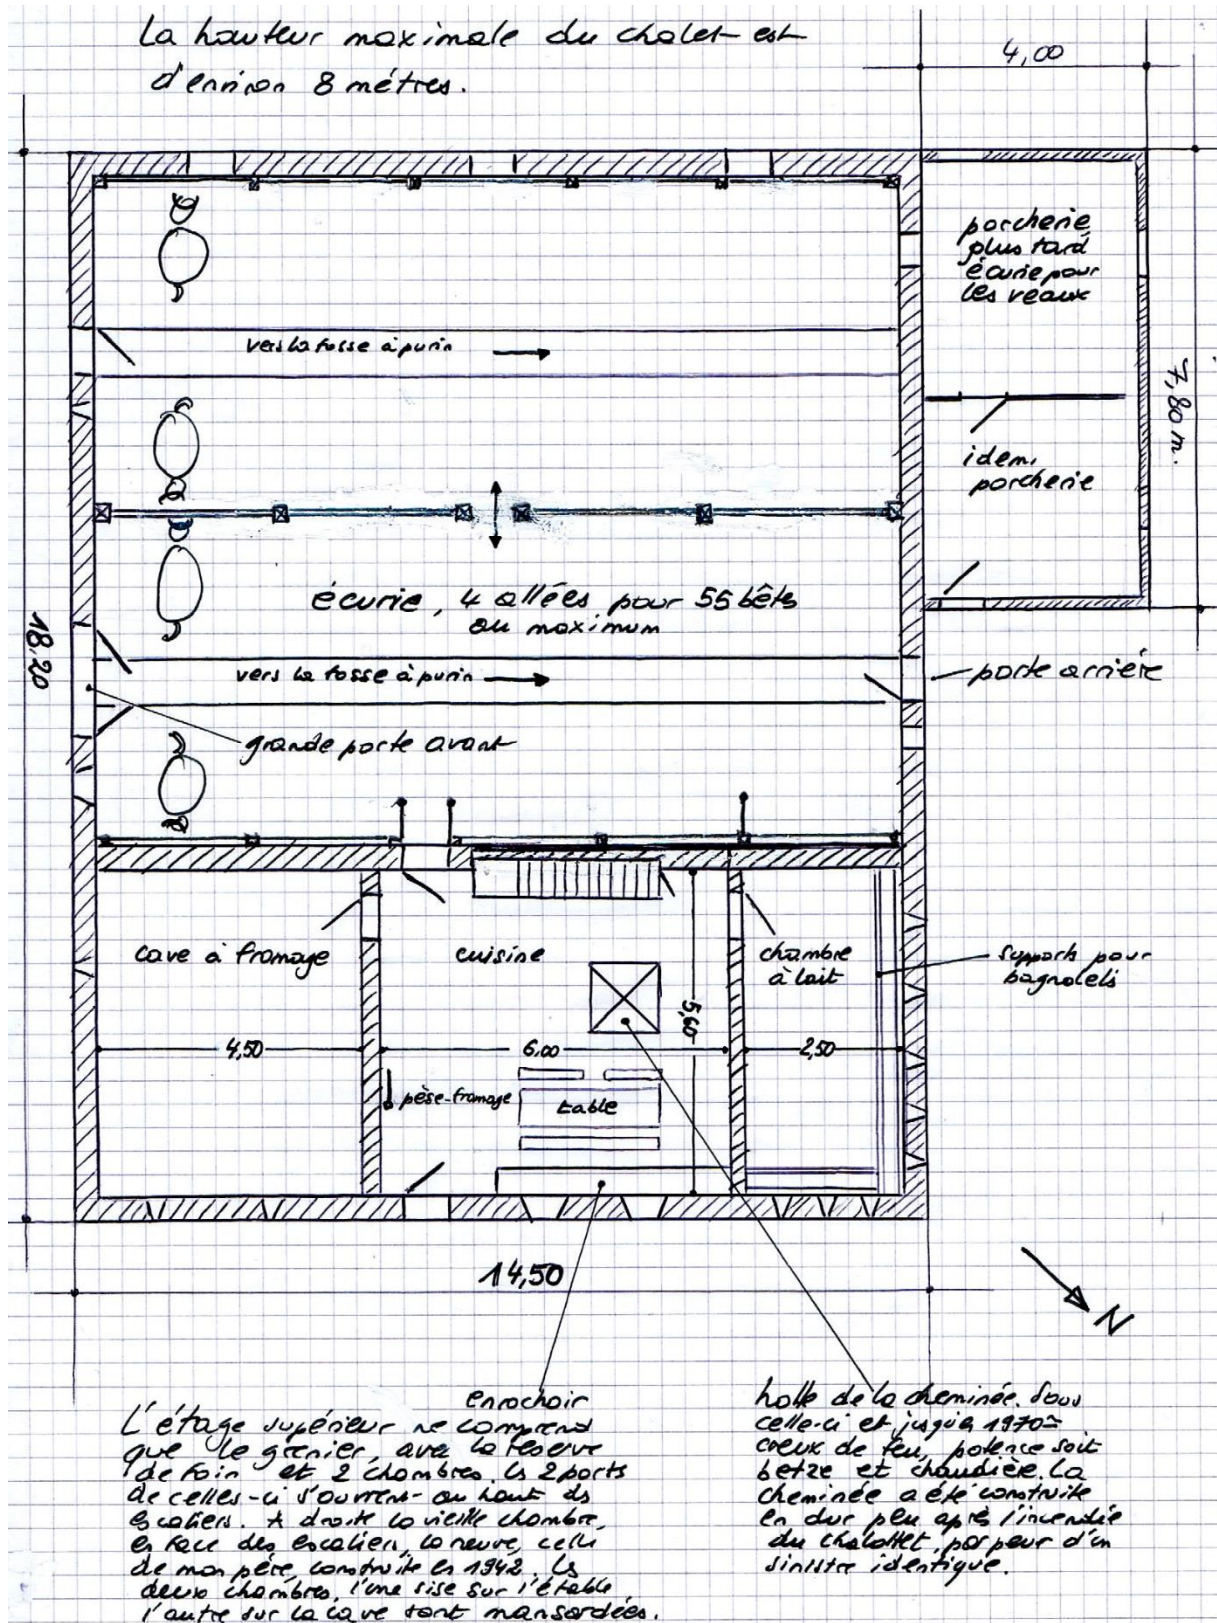 La hauteur maximale du chalet est
d'environ 8 métres.
4,00
porcherie
plus tard
écurie pour
les veaux
vers la fosse à purin
7,80 m.
idem,
porcherie
écurie, 4 allées pour 55 bêts
au maximum
18,20
vers la fosse à purin
porte arriére
grande porte avant
cave à fromage
cuisine
chambre
à lait
supports pour
bagnolets
5,60
4,50
6,00
2,50
pèse-fromage
table
14,50
N
enrochoir
L'étage supérieur ne comprend
que le grenier, avec la réserve
de foin et 2 chambres. Les 2 ports
de celles-ci s'ouvrent au haut ds
escaliers. A droite la vieille chambre,
en face des escaliers, la neuve, celle
de mon père, construite en 1942. Ls
deux chambres, l'une sise sur l'étable
l'autre sur la cave sont mansardées.
hotte de la cheminée. Sous
celle-ci et jusqu'à 1970
creux de feu, potence soit
betze et chaudière. La
cheminée a été construite
en dur peu après l'incendie
du chalottet, par peur d'un
sinistre identique.